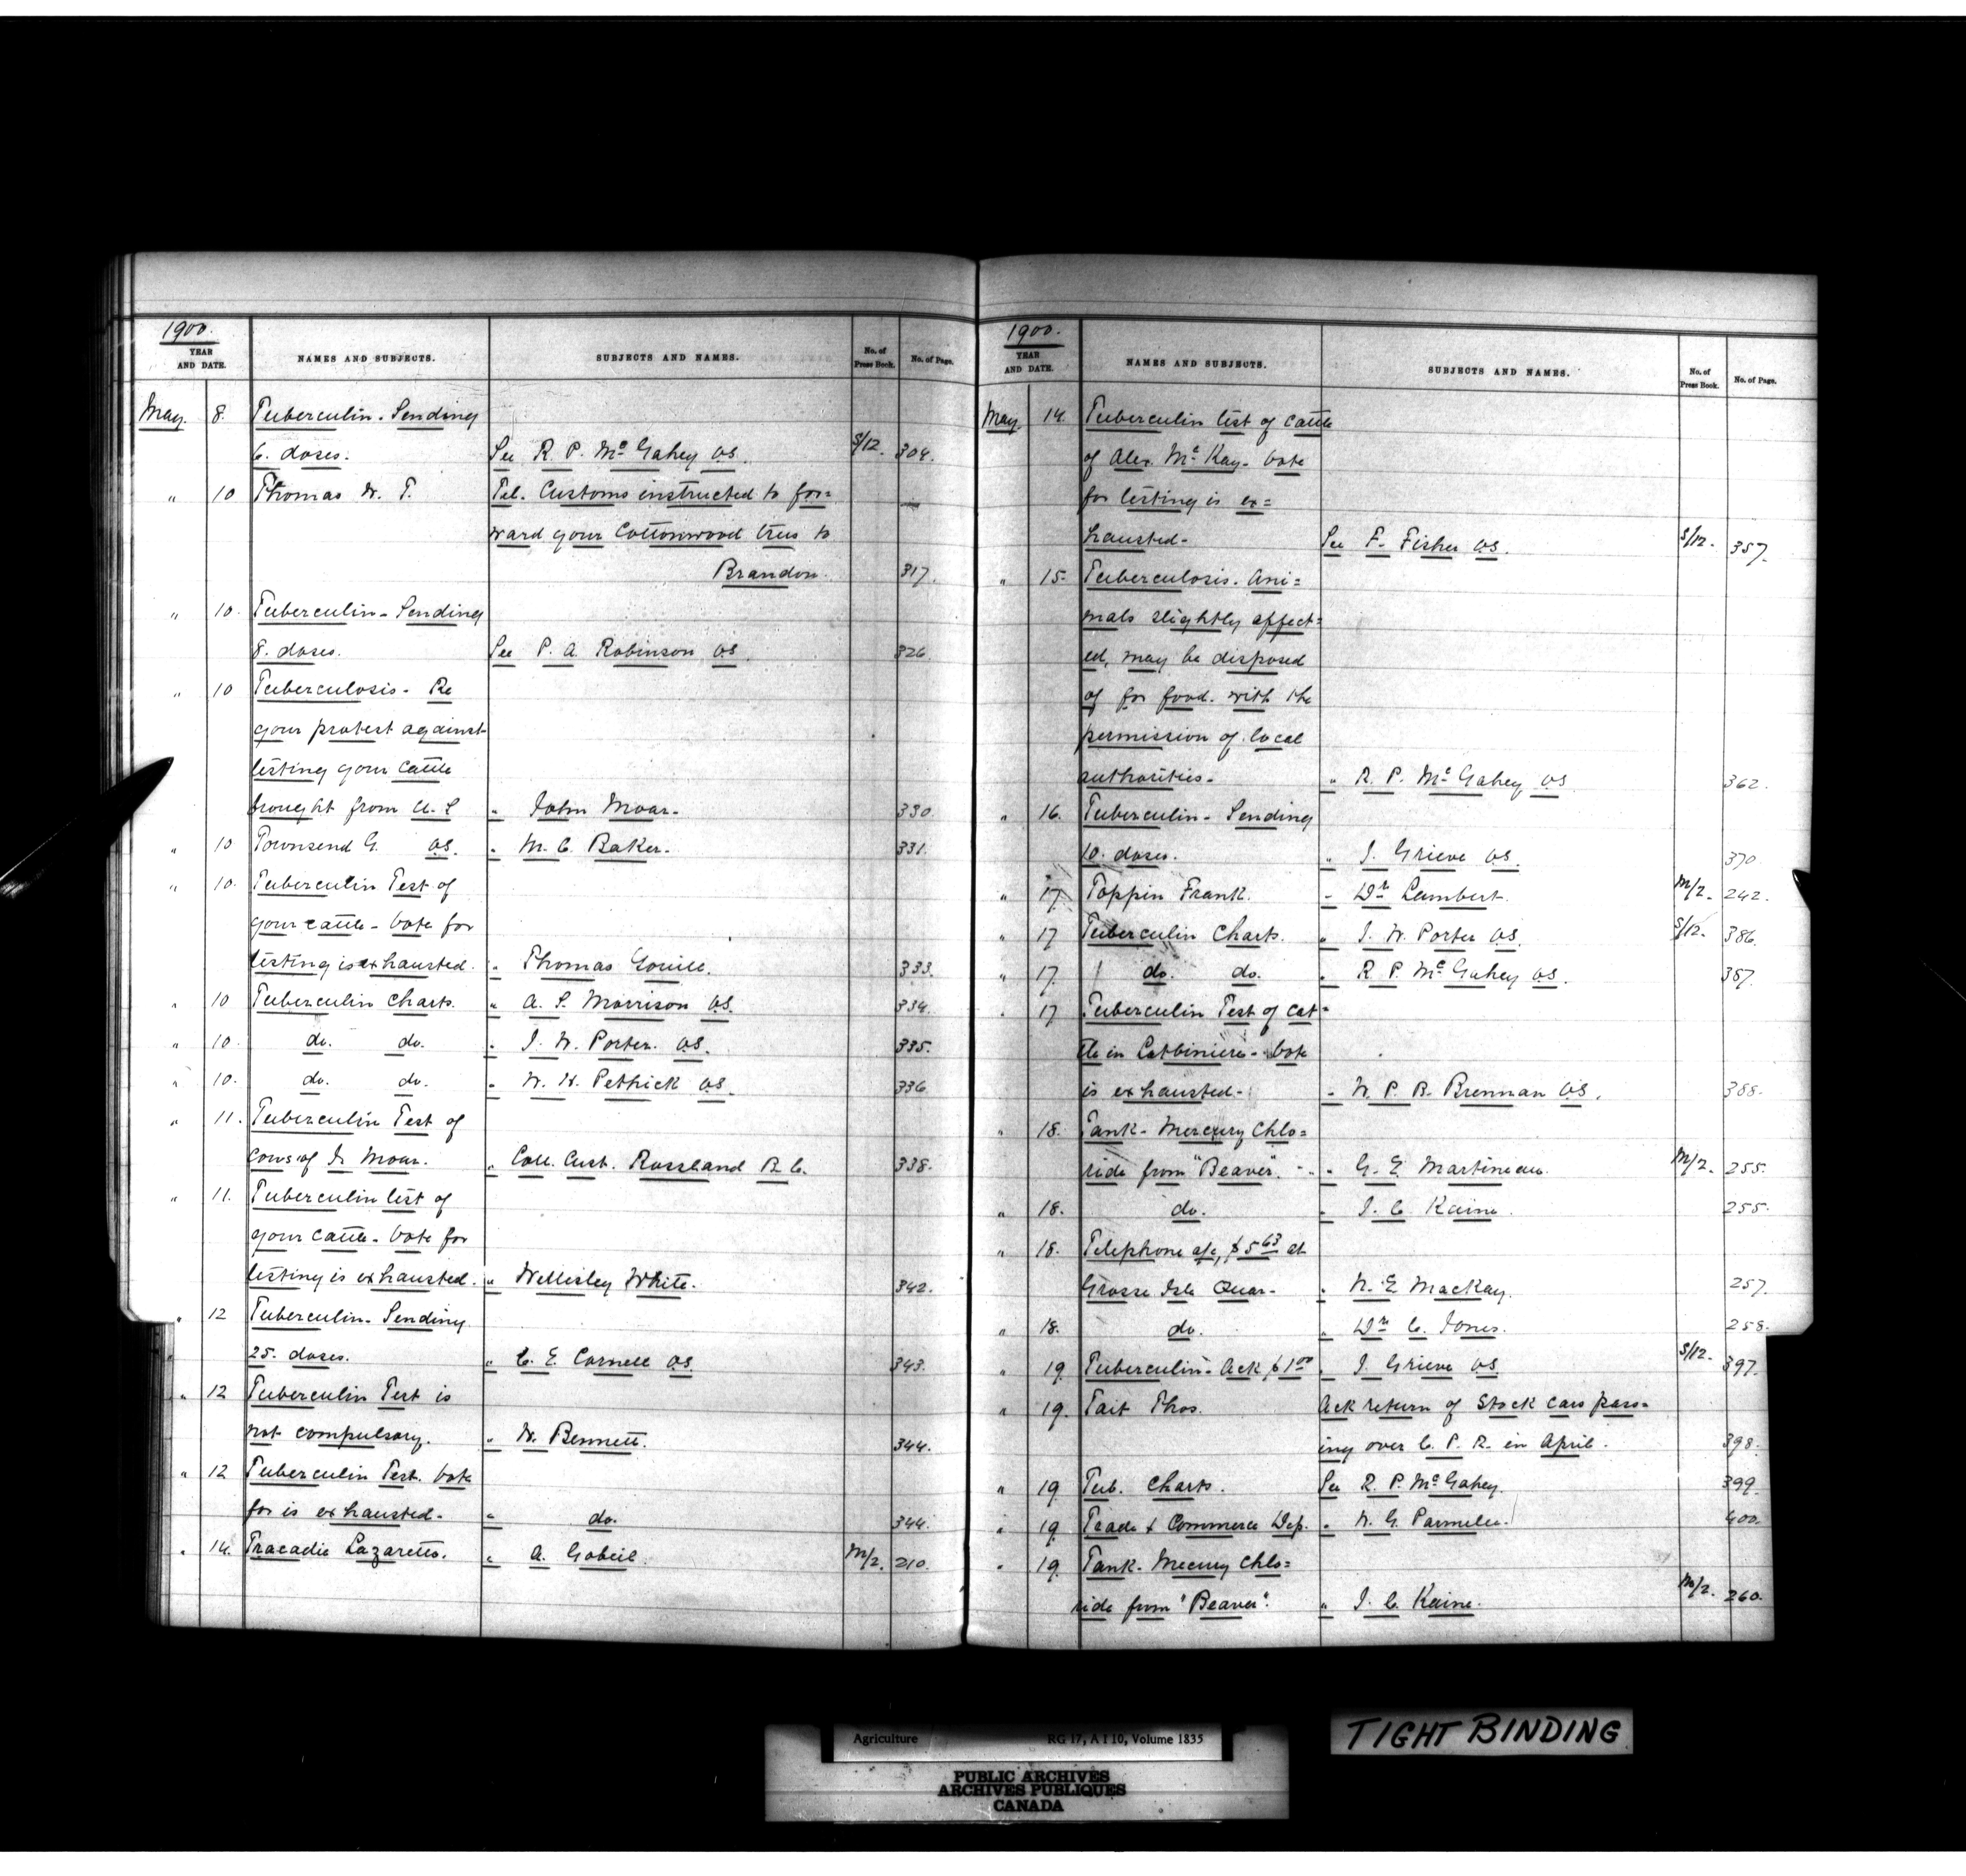 1900.
YEAR AND DATE. NAMES AND SUBJECTS. SUBJECTS AND NAMES. No. of Press Book. No. of Page.
May. 8. Tuberculin - Sending
6. doses. See R. P. McGahey V.S. S/12. 304.
" 10 Thomas W. T. Tel. Customs instructed to for=
ward your Cottonwood trees to
Brandon. 317.
" 10. Tuberculin - Sending
8. doses. See P. A. Robinson V.S. 326
" 10 Tuberculosis - Re
your protest against
testing your cattle
brought from U.S " John Moar. 330
" 10 Townsend G. V.S. " M. C. Baker. 331.
" 10. Tuberculin Test of
your cattle - Vote for
testing is exhausted. " Thomas 333.
" 10 Tuberculin Charts. " A. S. Morrison V.S. 334.
" 10. do. do. " J. W. Porter. V.S. 335.
" 10. do. do. " W. H. Pethick V.S. 336
" 11. Tuberculin Test of
cows of J. Moar. " Coll. Cust. Rossland B.C. 338.
" 11. Tuberculin test of
your cattle - Vote for
testing is exhausted. " Wellisley White. 342.
" 12 Tuberculin - Sending
25. doses. " C. E. Cornell V.S. 343.
" 12 Tuberculin Test is
not compulsory. " W. Bennett. 344.
" 12 Tuberculin Test. Vote
for is exhausted. " do. 344.
" 14. Tracadie Lazaretto. " A. Gobeil. M/2. 210.
1900.
YEAR AND DATE. NAMES AND SUBJECTS. SUBJECTS AND NAMES. No. of Press Book. No. of Page.
May. 14. Tuberculin test of cattle
of Alex. McKay - Vote
for testing is ex=
hausted - See F. Fisher V.S. S/12. 357.
" 15- Tuberculosis. Ani=
mals slightly affect=
ed, may be disposed
of for food. with the
permission of local
authorities - " R. P. McGahey V.S. 362.
" 16. Tuberculin - Sending
10. doses. " J. Grieve V.S. 370.
" 17 Toppin Frank. " Dr Lambert. M/2. 242.
" 17 Tuberculin Charts. " J. W. Porter V.S. S/12. 386.
" 17 do. do. " R. P. McGahey V.S. 387.
" 17 Tuberculin Test of Cat=
tle in Lotbiniere - Vote
is exhausted - " W. P. B. Brennan V.S. 388.
" 18. Tank - Mercury Chlo=
ride from "Beaver". " G. E. Martineau. M/2. 255.
" 18. do. " J. C. Kaine. 255.
" 18. Telephone a/c, $5.63 at
Grosse Isle Quar - " N. E. MacKay. 257.
" 18. do. " Dr C. Jones. 258.
" 19. Tuberculin - Ack $1.00 " J. Grieve V.S. S/12. 397.
" 19. Tait Thos. Ack return of Stock Cars pass=
ing over C. P. R. in April. 398.
" 19 Tub. Charts. See R. P. McGahey. 399.
" 19 Trade & Commerce Dep. " W. G. Parmelee. 400.
" 19. Tank - Mecury Chlo=
ride from "Beaver". " J. C. Kaine. M/2. 260.
Agriculture RG 17, A I 10, Volume 1835
PUBLIC ARCHIVES
ARCHIVES PUBLIQUES
CANADA
TIGHT BINDING